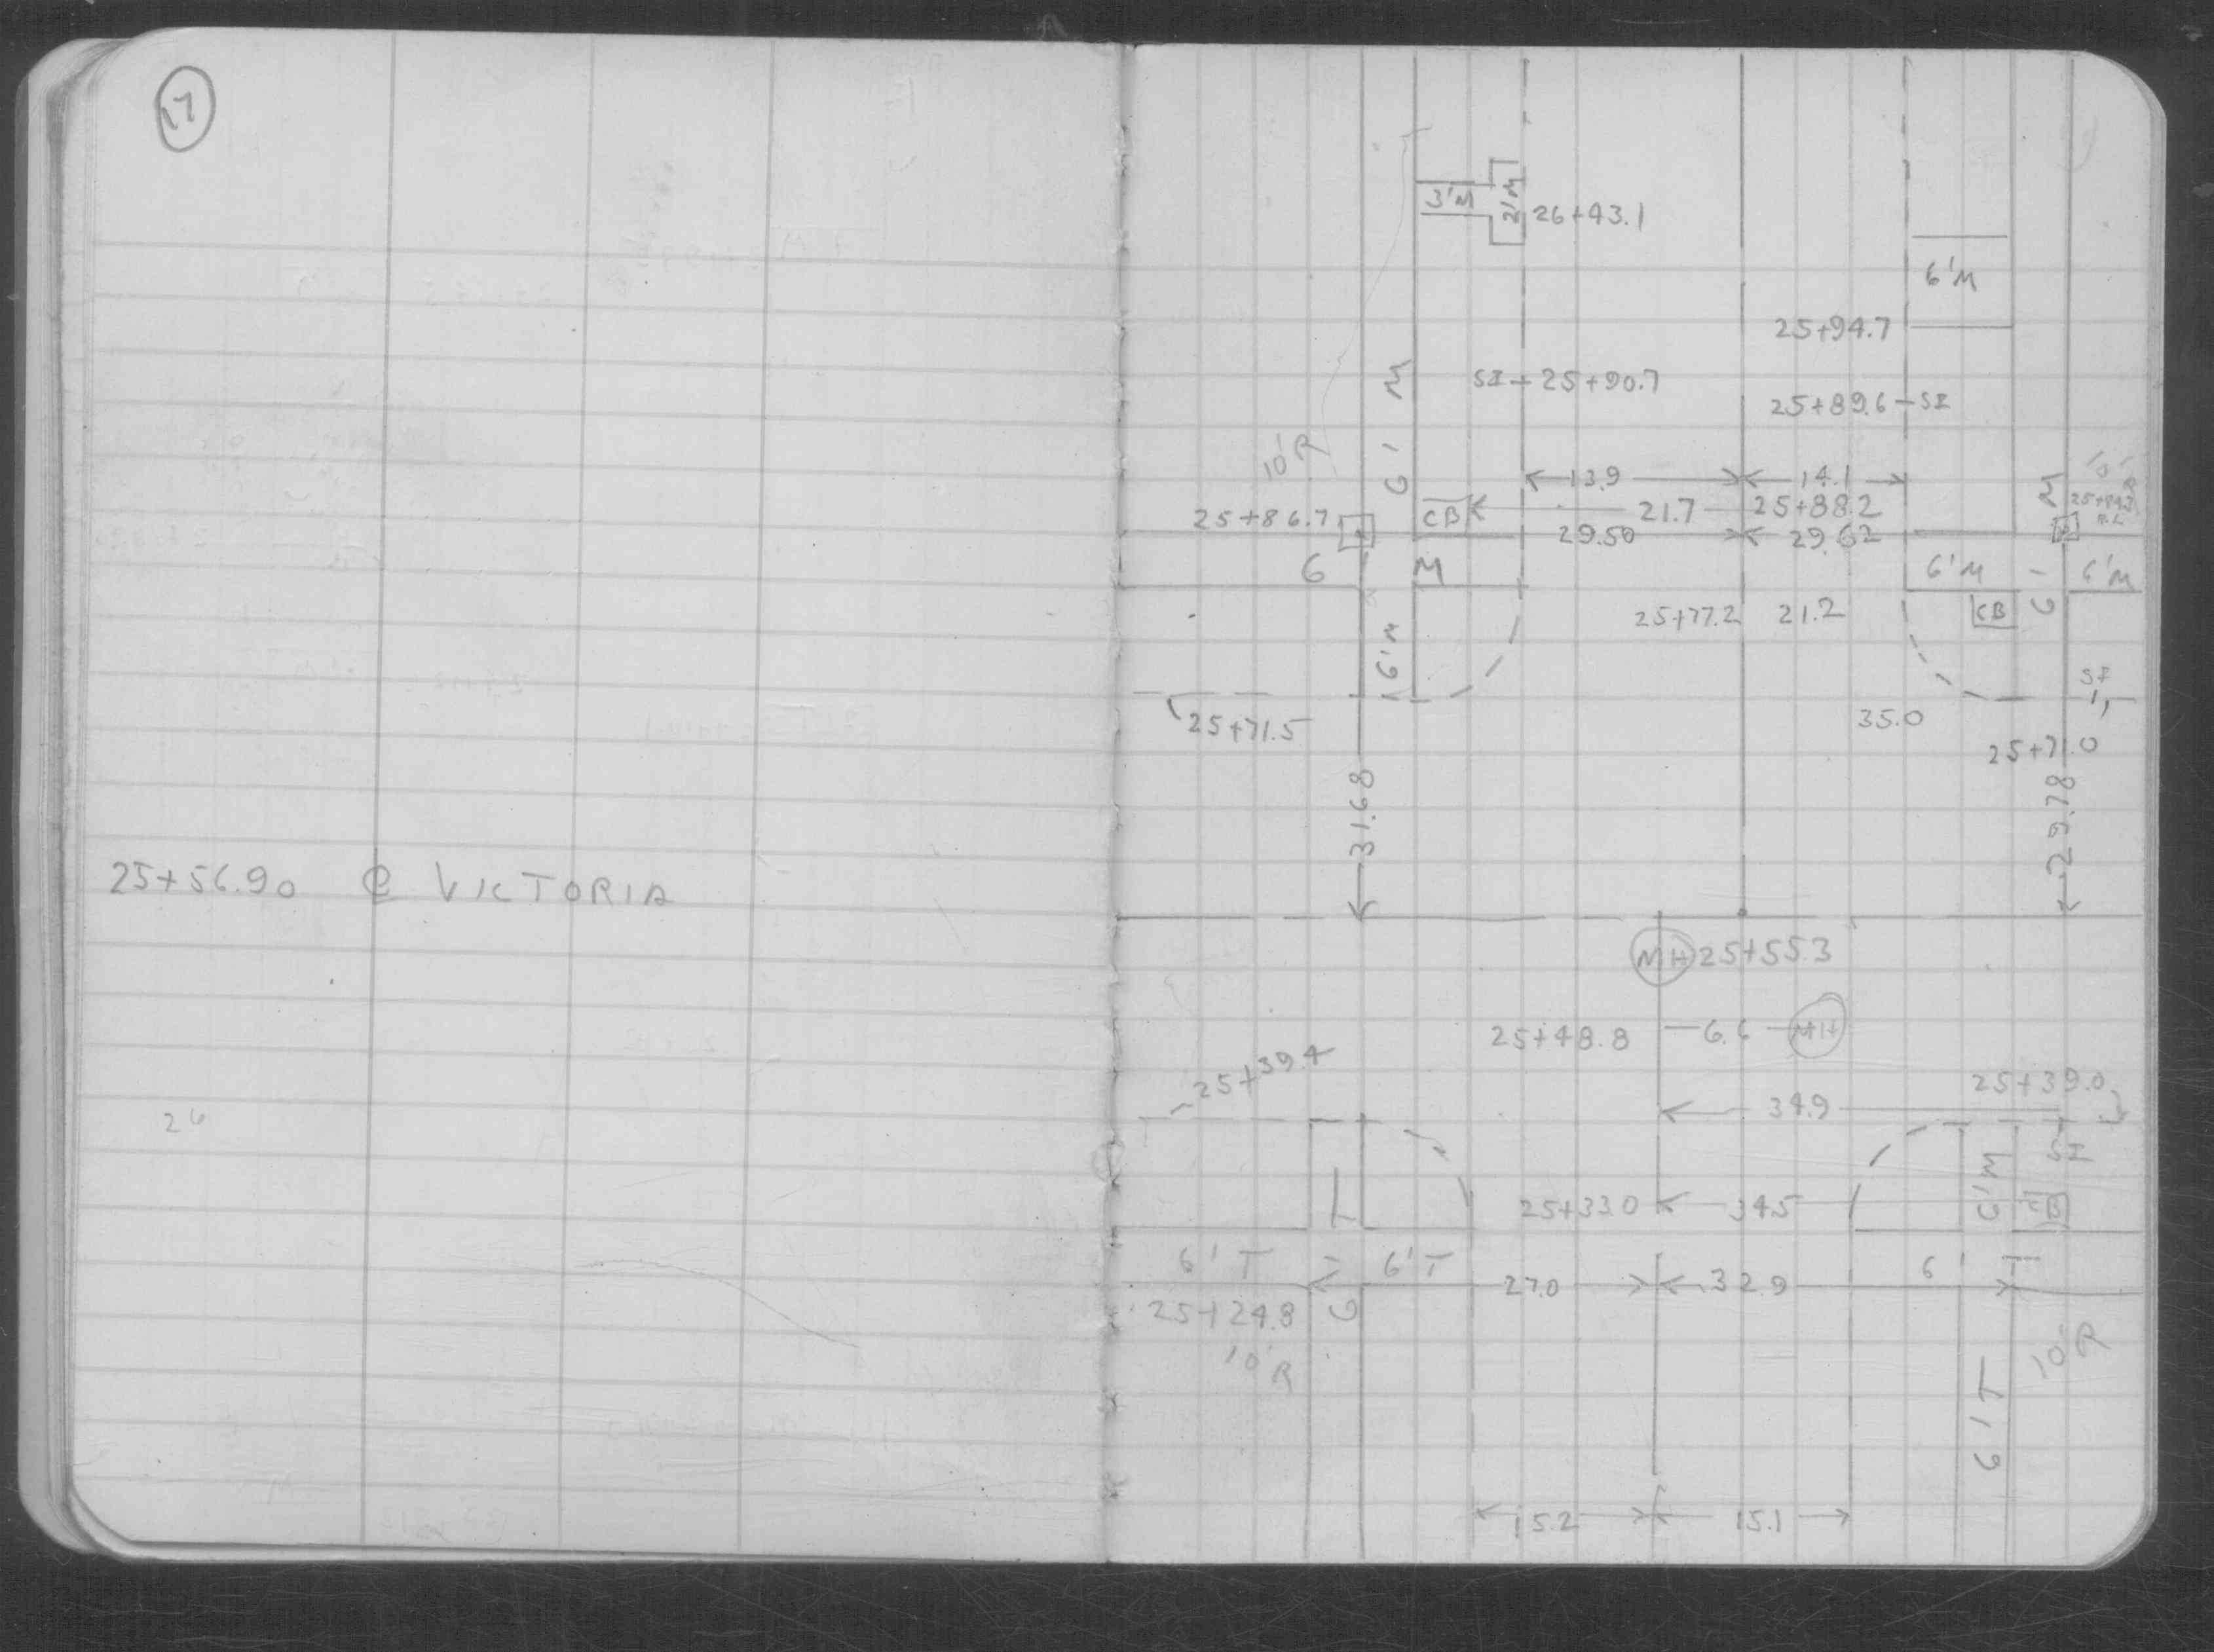 17
3'M
2'M
26+43.1
6'M
25+94.7
SI 25+90.7
25+89.6 SI
6' M
10' R
13.9
14.1
25+86.7
CB
21.7
25+88.2
M
29.50
29.62
6 M
6'M
6'
6'M
6'M
25+77.2
21.2
CB
SI
25+71.5
35.0
25+71.0
31.68
29.78
25+56.90 ⅊ VICTORIA
MH 25+55.3
25+48.8
6.6
MH
25+39.4
25+39.0
34.9
26
6'M
SI
25+33.0
34.5
CB
6' T
6' T
6' T
27.0
32.9
25+24.8
6
10' R
10' R
6' T
15.2
15.1